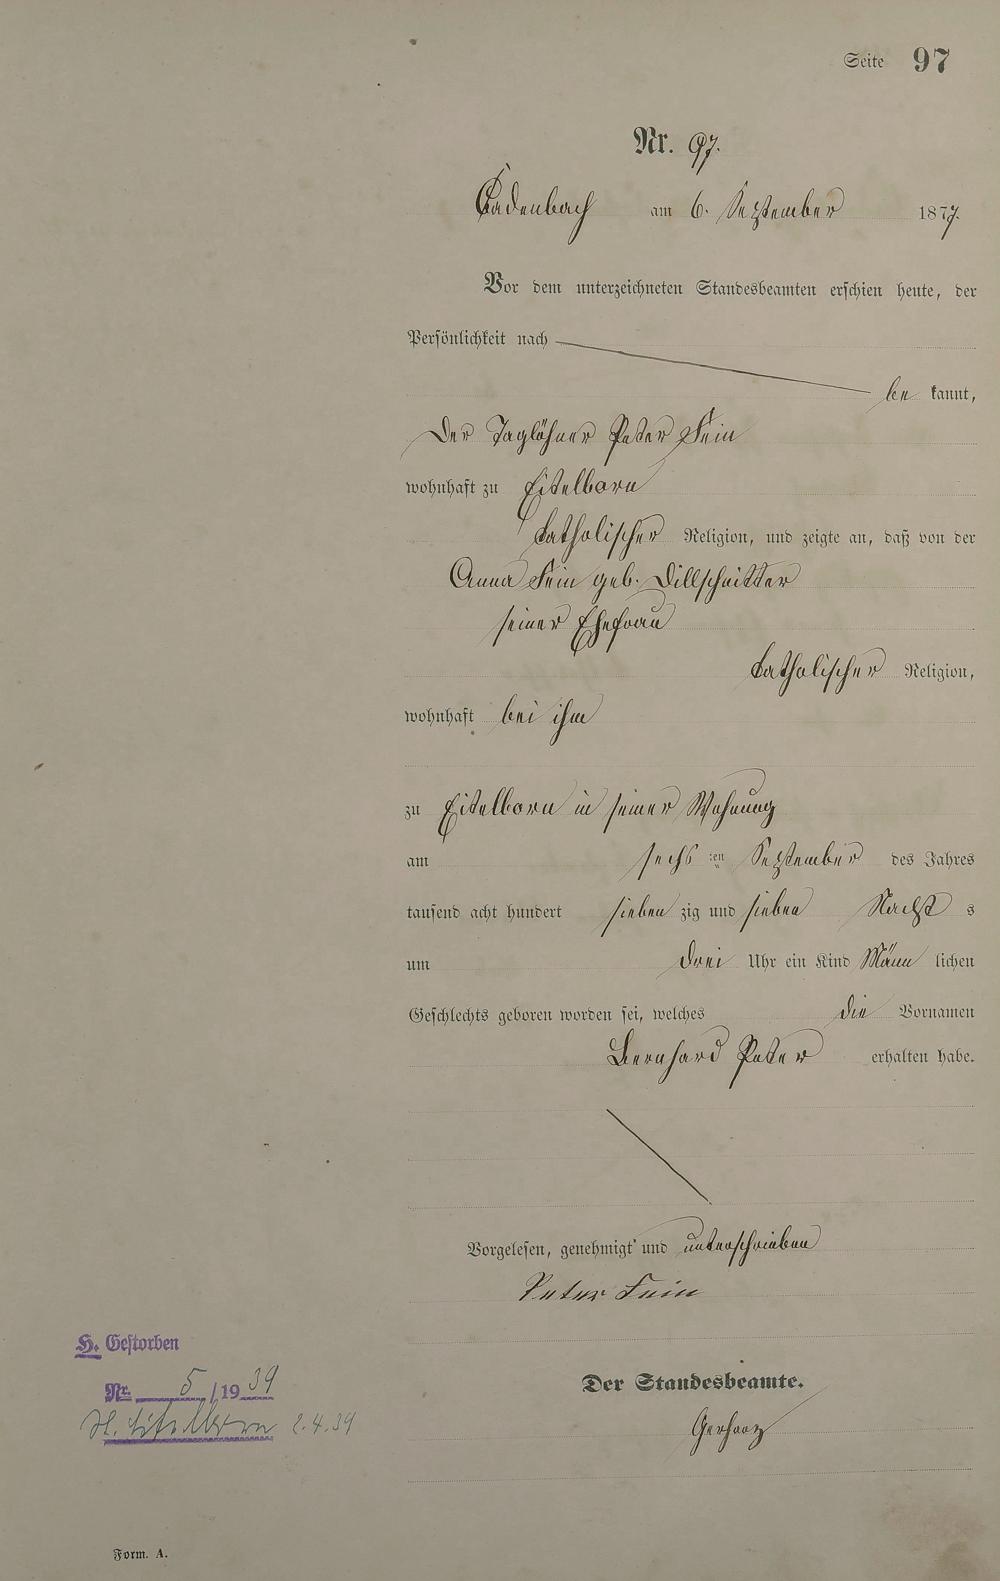 Seite 97
Nr. 97.
Cadenbach am 6. September 1877.
Vor dem unterzeichneten Standesbeamten erschien heute, der
Persönlichkeit nach
be kannt,
Der Taglöhner Peter Fein
wohnhaft zu Eitelborn
katholischer Religion, und zeigte an, daß von der
Anna Fein geb. Dillschnitter
seiner Ehefrau
katholischer Religion,
wohnhaft bei ihm
zu Eitelborn in seiner Wohnung
am sechsten September des Jahres
tausend acht hundert sieben zig und sieben Nacht s
um drei Uhr ein Kind Männ lichen
Geschlechts geboren worden sei, welches die Vornamen
Bernhard Peter erhalten habe.
Vorgelesen, genehmigt und unterschrieben
Peter Fein
H. Gestorben
Nr. 5 /19 39
St. Eitelborn 2.4.39
Der Standesbeamte.
Gerharz
Form. A.